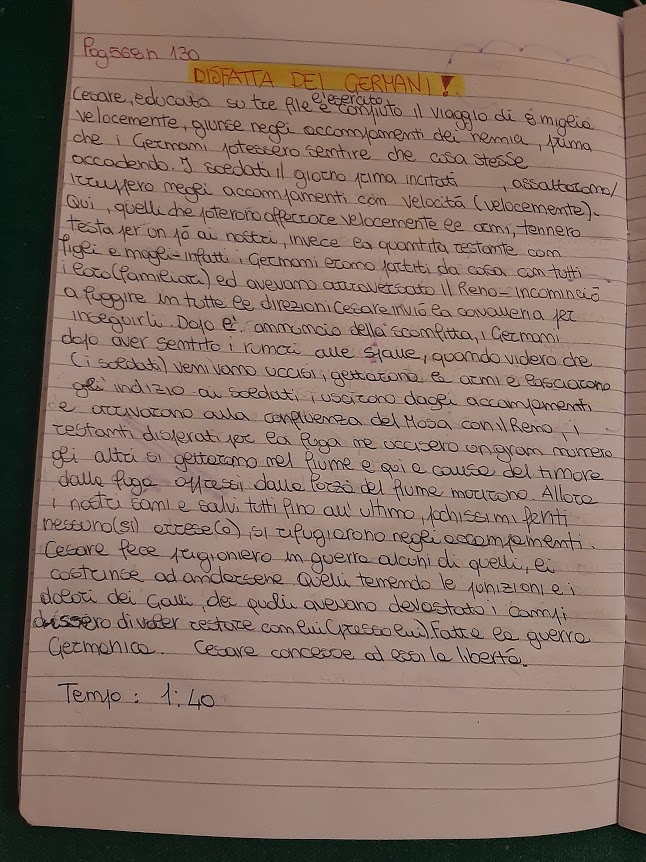 Pag 568 n 130
DISFATTA DEI GERMANI!
Cesare, educato su tre file e l'esercito e compiuto il viaggio di 8 miglia
velocemente, giunse negli accampamenti dei nemia, prima
che i Germani potessero sentire che cosa stesse
accadendo. I soldati il giorno prima incitati , assaltarono/
irruppero negli accampamenti con velocità (velocemente).
Qui, quelli che poterono afferrare velocemente le armi, tennero
testa per un pò ai nostri, invece la quantità restante con
figli e mogli-infatti i Germani erano partiti da casa con tutti
i loro (familiari) ed avevano attraversato il Reno-incominciò
a fuggire in tutte le direzioni Cesare inviò la cavalleria per
inseguirli. Dopo l' annuncio della sconfitta, i Germani
dopo aver sentito i rumori alle spalle, quando videro che
(i soldati) venivano uccisi, gettarono le armi e lasciarono
gli indizio ai soldati, uscirono dagli accampamenti
e arrivarono alla confluenza del Mosa con il Reno, i
restanti disperati per la fuga ne uccisero un gran numero
gli altri si gettarono nel fiume e qui a causa del timore
dalla fuga oppressi dalla forza del fiume morirono. Allora
i nostri sani e salvi tutti fino all'ultimo, pochissimi feriti
nessuno(si) attese(o), si rifugiarono negli accampamenti.
Cesare fece prigioniero in guerra alcuni di quelli, li
costrinse ad andarsene Quelli temendo le punizioni e i
dolori dei Galli, dei quali avevano devastato i campi
dissero di voler restare con lui (presso lui). Fatta la guerra
Germanica. Cesare concesse ad essi la libertà.
Tempo : 1:40